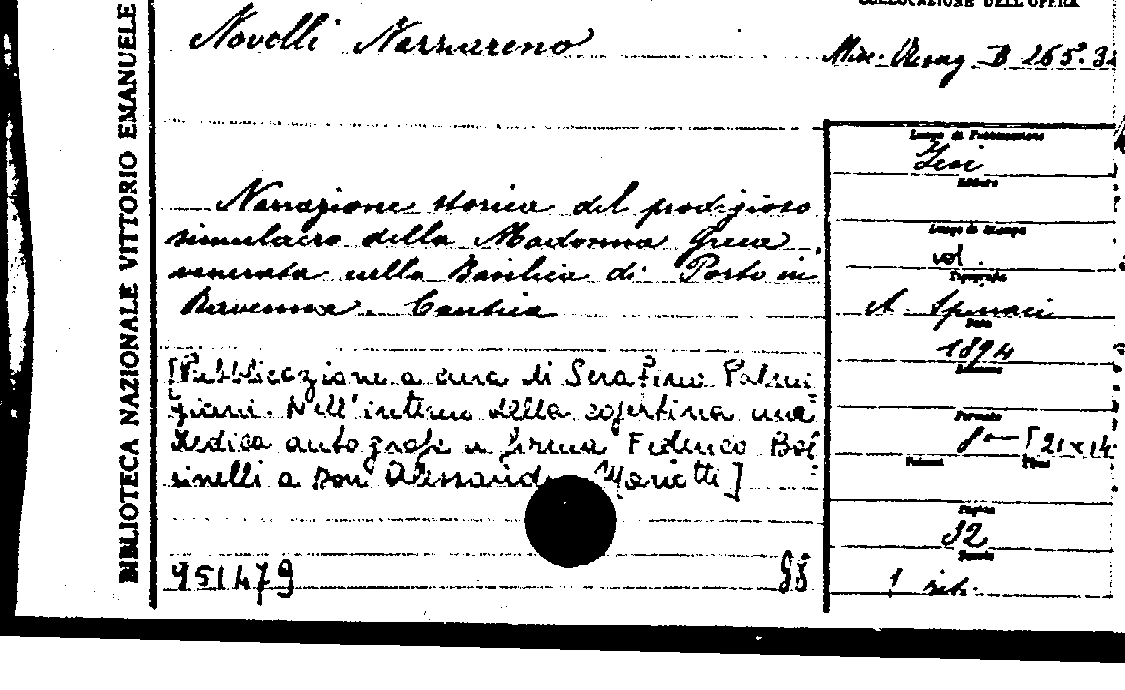 BIBLIOTECA NAZIONALE VITTORIO EMANUELE
COLLOCAZIONE DELL'OPERA
Novelli Nazzareno
Misc. Risorg B 265.
Narrazione storica del prodigioso
simulacro della Madonna Greca,
venerata nella Basilica di Porto in
Ravenna. Cantica
[Pubblicazione a cura di Serafino Palmi
giani. Nell'interno della copertina una
dedica autografa a firma Federico Bol
sinelli a Don Alessandro Mariotti]
951479
Luogo di Pubblicazione
Jesi
Editore
Luogo di Stampa
vol.
Tipografia
A. Spinaci
Data
1894
Edizione
Formato
8° [21x14
Volumi
Tomi
Pagine
32
Tavole
1 rit.